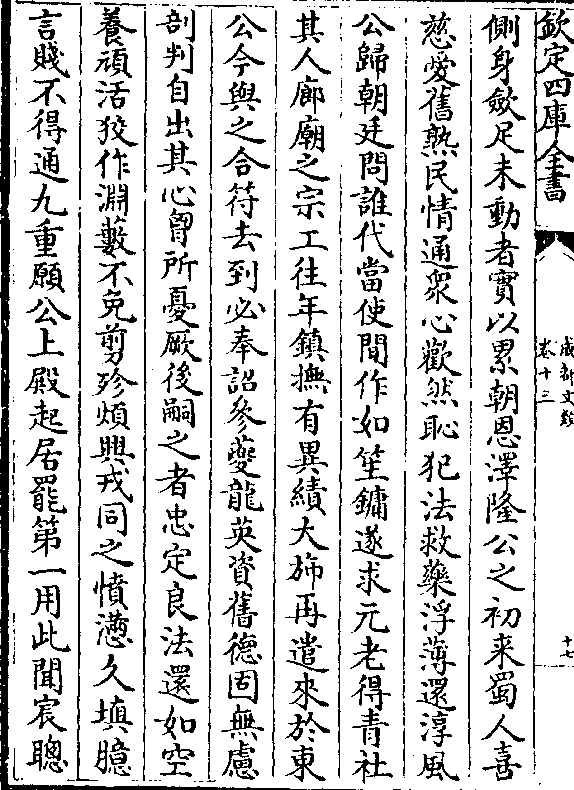 欽定四庫全書
成都文類
卷十三
十七
側身斂足未動者實以累朝恩澤隆公之初来蜀人喜
慈愛舊熟民情通衆心歡然恥犯法救藥浮薄還淳風
公歸朝廷問誰代當使間作如笙鏞遂求元老得青社
其人廊廟之宗工往年鎮撫有異績大斾再遣來於東
公今與之合符去到必奉詔參夔龍英資舊德固無慮
剖判自出其心胷所憂厥後嗣之者忠定良法還如空
養頑活狡作淵藪不免剪殄煩興戎同之憤懣久填臆
言賤不得通九重願公上殿起居罷第一用此聞宸聰